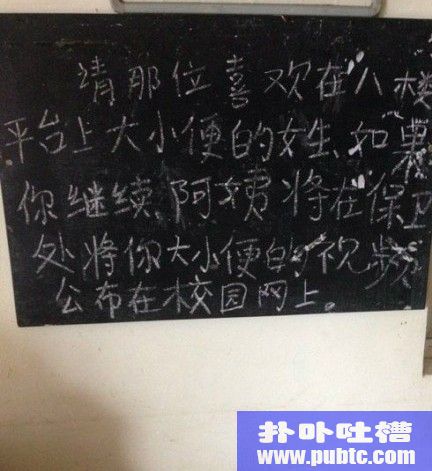 请那位喜欢在八楼
平台上大小便的女生、如果
你继续,阿姨将在保卫
处将你大小便的视频
公布在校园网上。
扑卟吐槽
www.pubtc.com